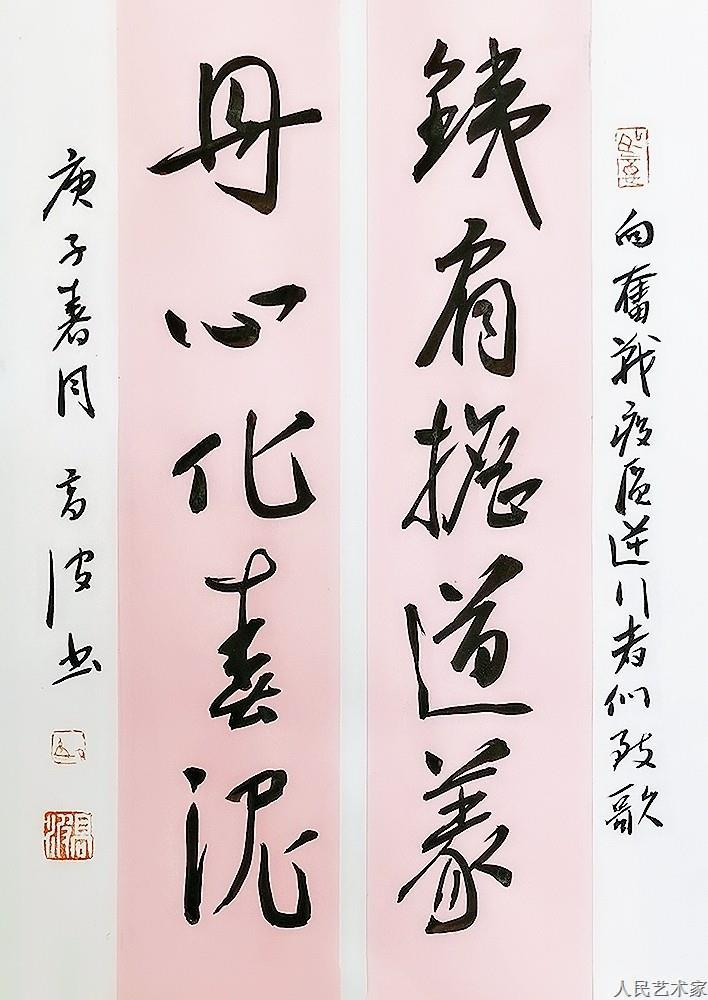 向奮战疫区逆行者们致歌
銕肩擔道義
丹心化春泥
庚子春月 高波书
高波
人民艺术家